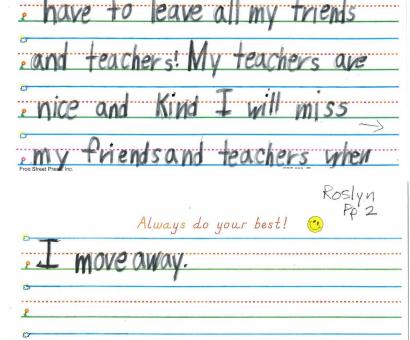 have to leave all my friends
and teachers! My teachers are
nice and kind I will miss
my friends and teachers when
Frog Street Press, Inc.
Roslyn
Pp 2
Always do your best!
I move away.